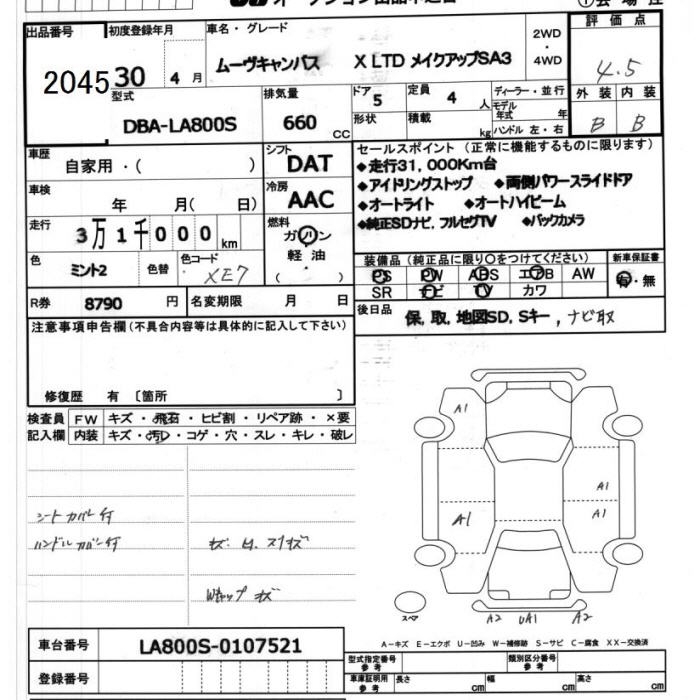 出品番号 2045
初度登録年月 30 4 月
車名・グレード
ムーヴキャンバス X LTD メイクアップSA3
2WD
・
4WD
評価点
4.5
外装 内装
B B
型式
DBA-LA800S
排気量
660 CC
ドア 5
形状
定員 4 人
積載 kg
ディーラー・並行
モデル年式 年
ハンドル 左・右
車歴
自家用・( )
シフト
DAT
車検 年 月( 日)
冷房
AAC
走行 3万1千000 km
燃料
ガソリン
軽油
( )
色 ミント2 色替 色コード XE7
R券 8790 円 名変期限 月 日
セールスポイント (正常に機能するものに限ります)
◆走行31,000Km台
◆アイドリングストップ ◆両側パワースライドドア
◆オートライト ◆オートハイビーム
◆純正SDナビ,フルセグTV ◆バックカメラ
装備品 (純正品に限り○をつけてください) 新車保証書
PS PW ABS エアB AW 有・無
SR ナビ TV カワ
後日品 保,取,地図SD,Sキー,ナビ取
注意事項申告欄(不具合内容等は具体的に記入して下さい)
修復歴 有 〔箇所 〕
検査員 FW キズ・飛石・ヒビ割・リペア跡・×要
記入欄 内装 キズ・汚レ・コゲ・穴・スレ・キレ・破レ
シートカバー付
ハンドルカバー付
Wキャップ キズ
A1
A1
A1
A1
スペア
A2 UA1 A2
車台番号 LA800S-0107521
登録番号
A-キズ E-エクボ U-凹み W-補修跡 S-サビ C-腐食 XX-交換済
型式指定番号 参考 類別区分番号 参考
車庫証明用 参考 長さ cm 幅 cm 高さ cm